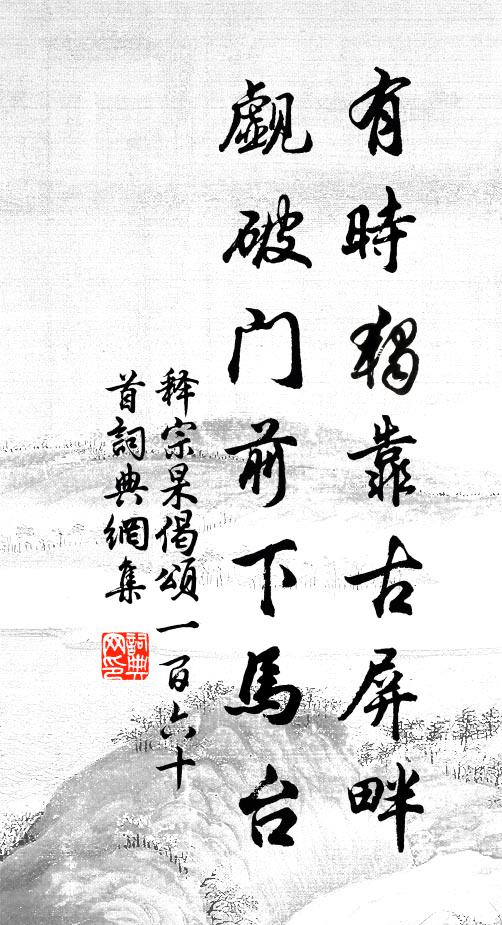 有時獨靠古屏畔
觑破门前下馬台
释宗杲偈頌一百六十
首詞典網集
詞典
网印